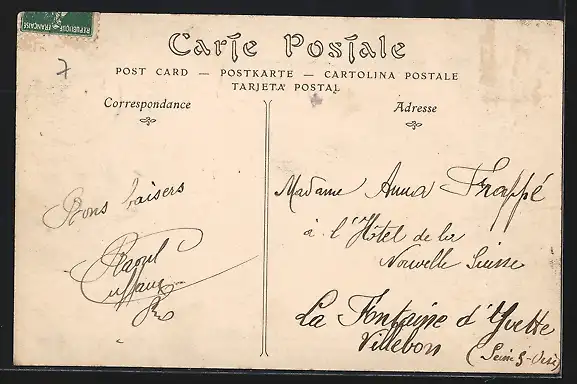 REPUBLIQUE FRANÇAISE
7
Carte Postale
POST CARD — POSTKARTE — CARTOLINA POSTALE
TARJETA POSTAL
Correspondance
Bons baisers
Raoul
Adresse
Madame Anna Frappé
à l'Hôtel de la
Nouvelle Suisse
La Fontaine d'Yvette
Villebon
(Seine & Oise)